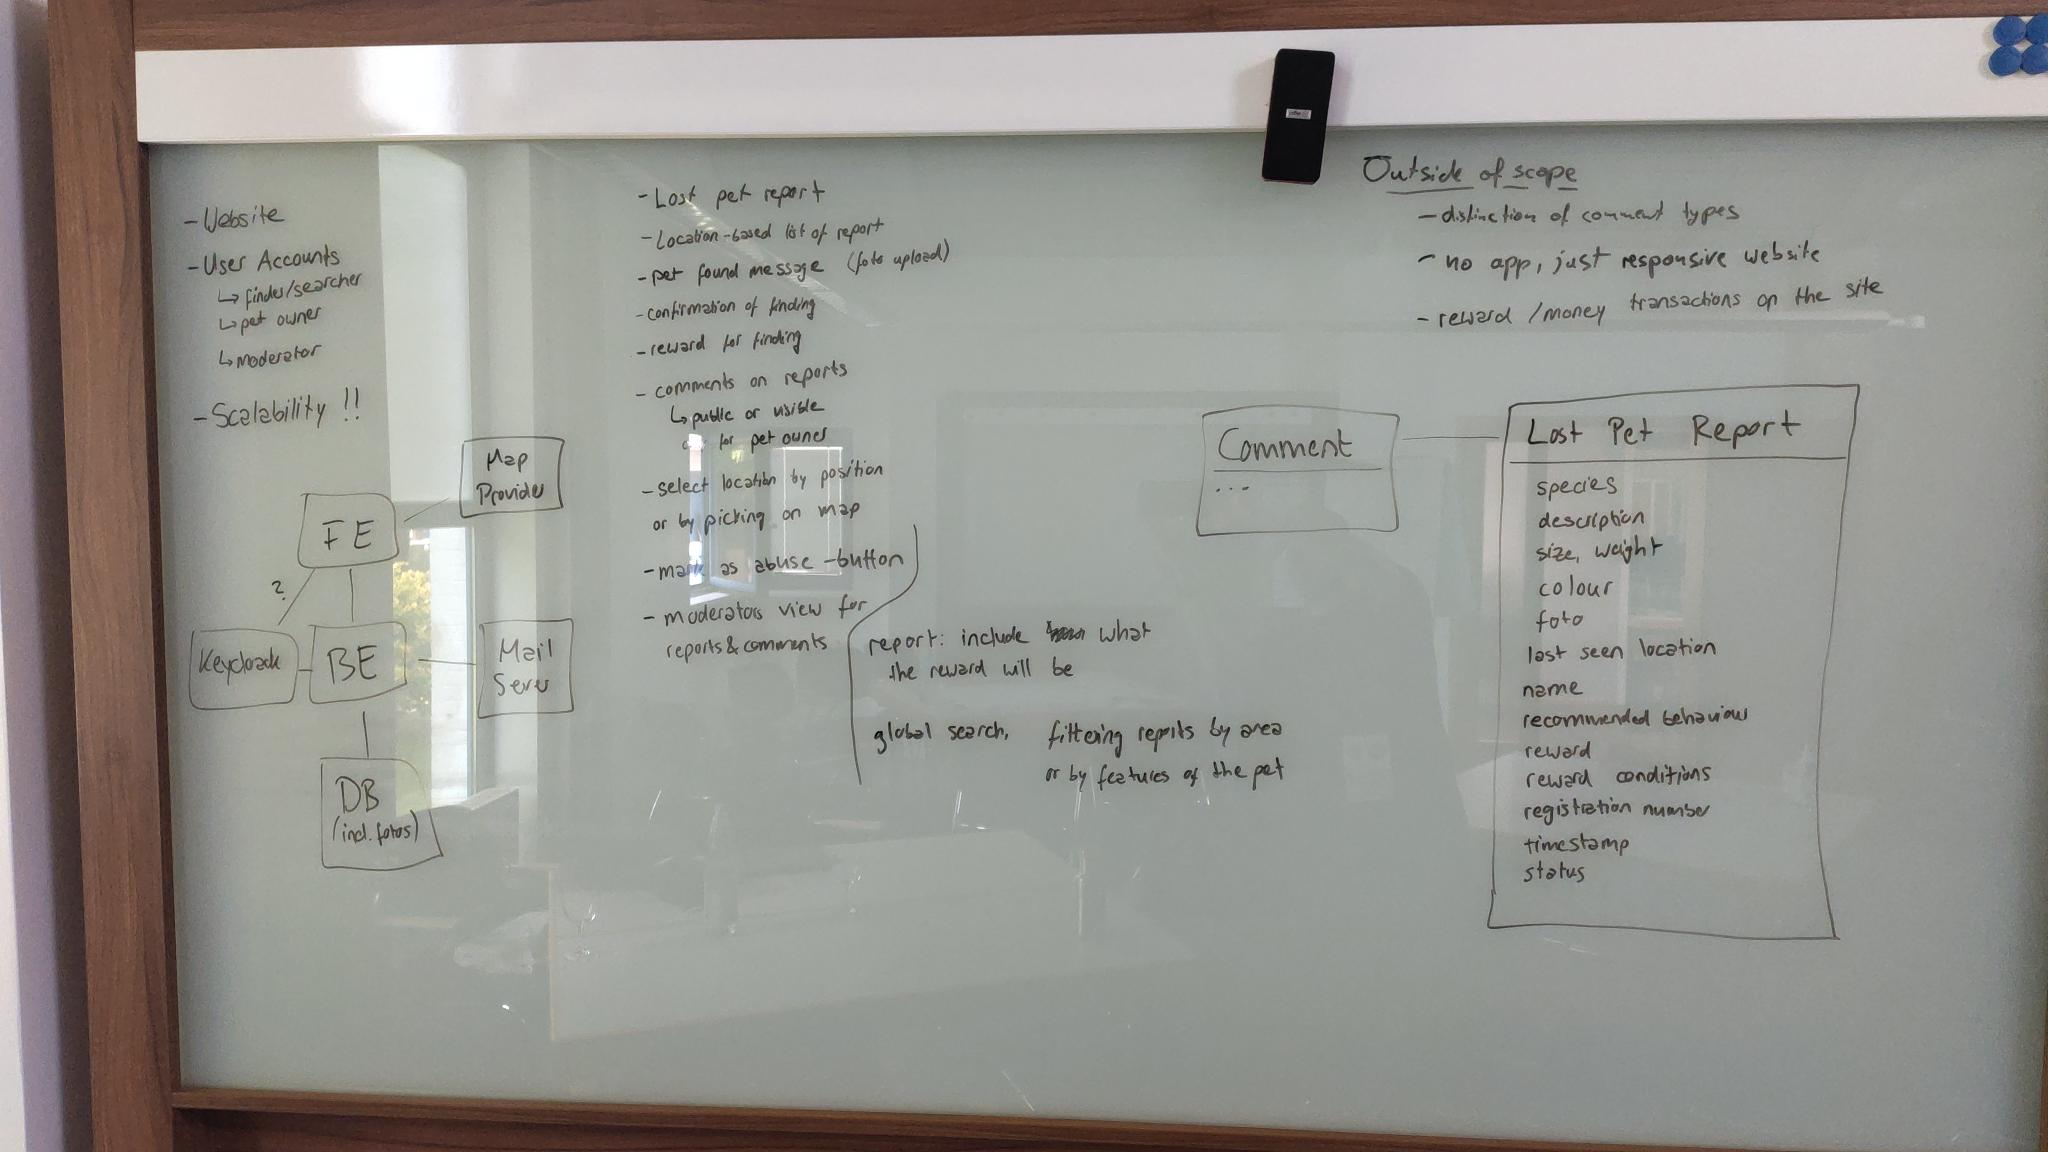 - Website
- User Accounts
↳ finder/searcher
↳ pet owner
↳ moderator
- Scalability !!
Map
Provider
FE
?
Keycloak
BE
Mail
Server
DB
(incl. fotos)
- Lost pet report
- Location-based list of report
- pet found message (foto upload)
- confirmation of finding
- reward for finding
- comments on reports
↳ public or visible
for pet owner
- select location by position
or by picking on map
- mark as abuse -button
- moderators view for
reports & comments
report: include what
the reward will be
global search, filtering reports by area
or by features of the pet
Outside of scope
- distinction of comment types
- no app, just responsive website
- reward /money transactions on the site
Comment
...
Lost Pet Report
species
description
size, weight
colour
foto
last seen location
name
recommended behaviour
reward
reward conditions
registration number
timestamp
status